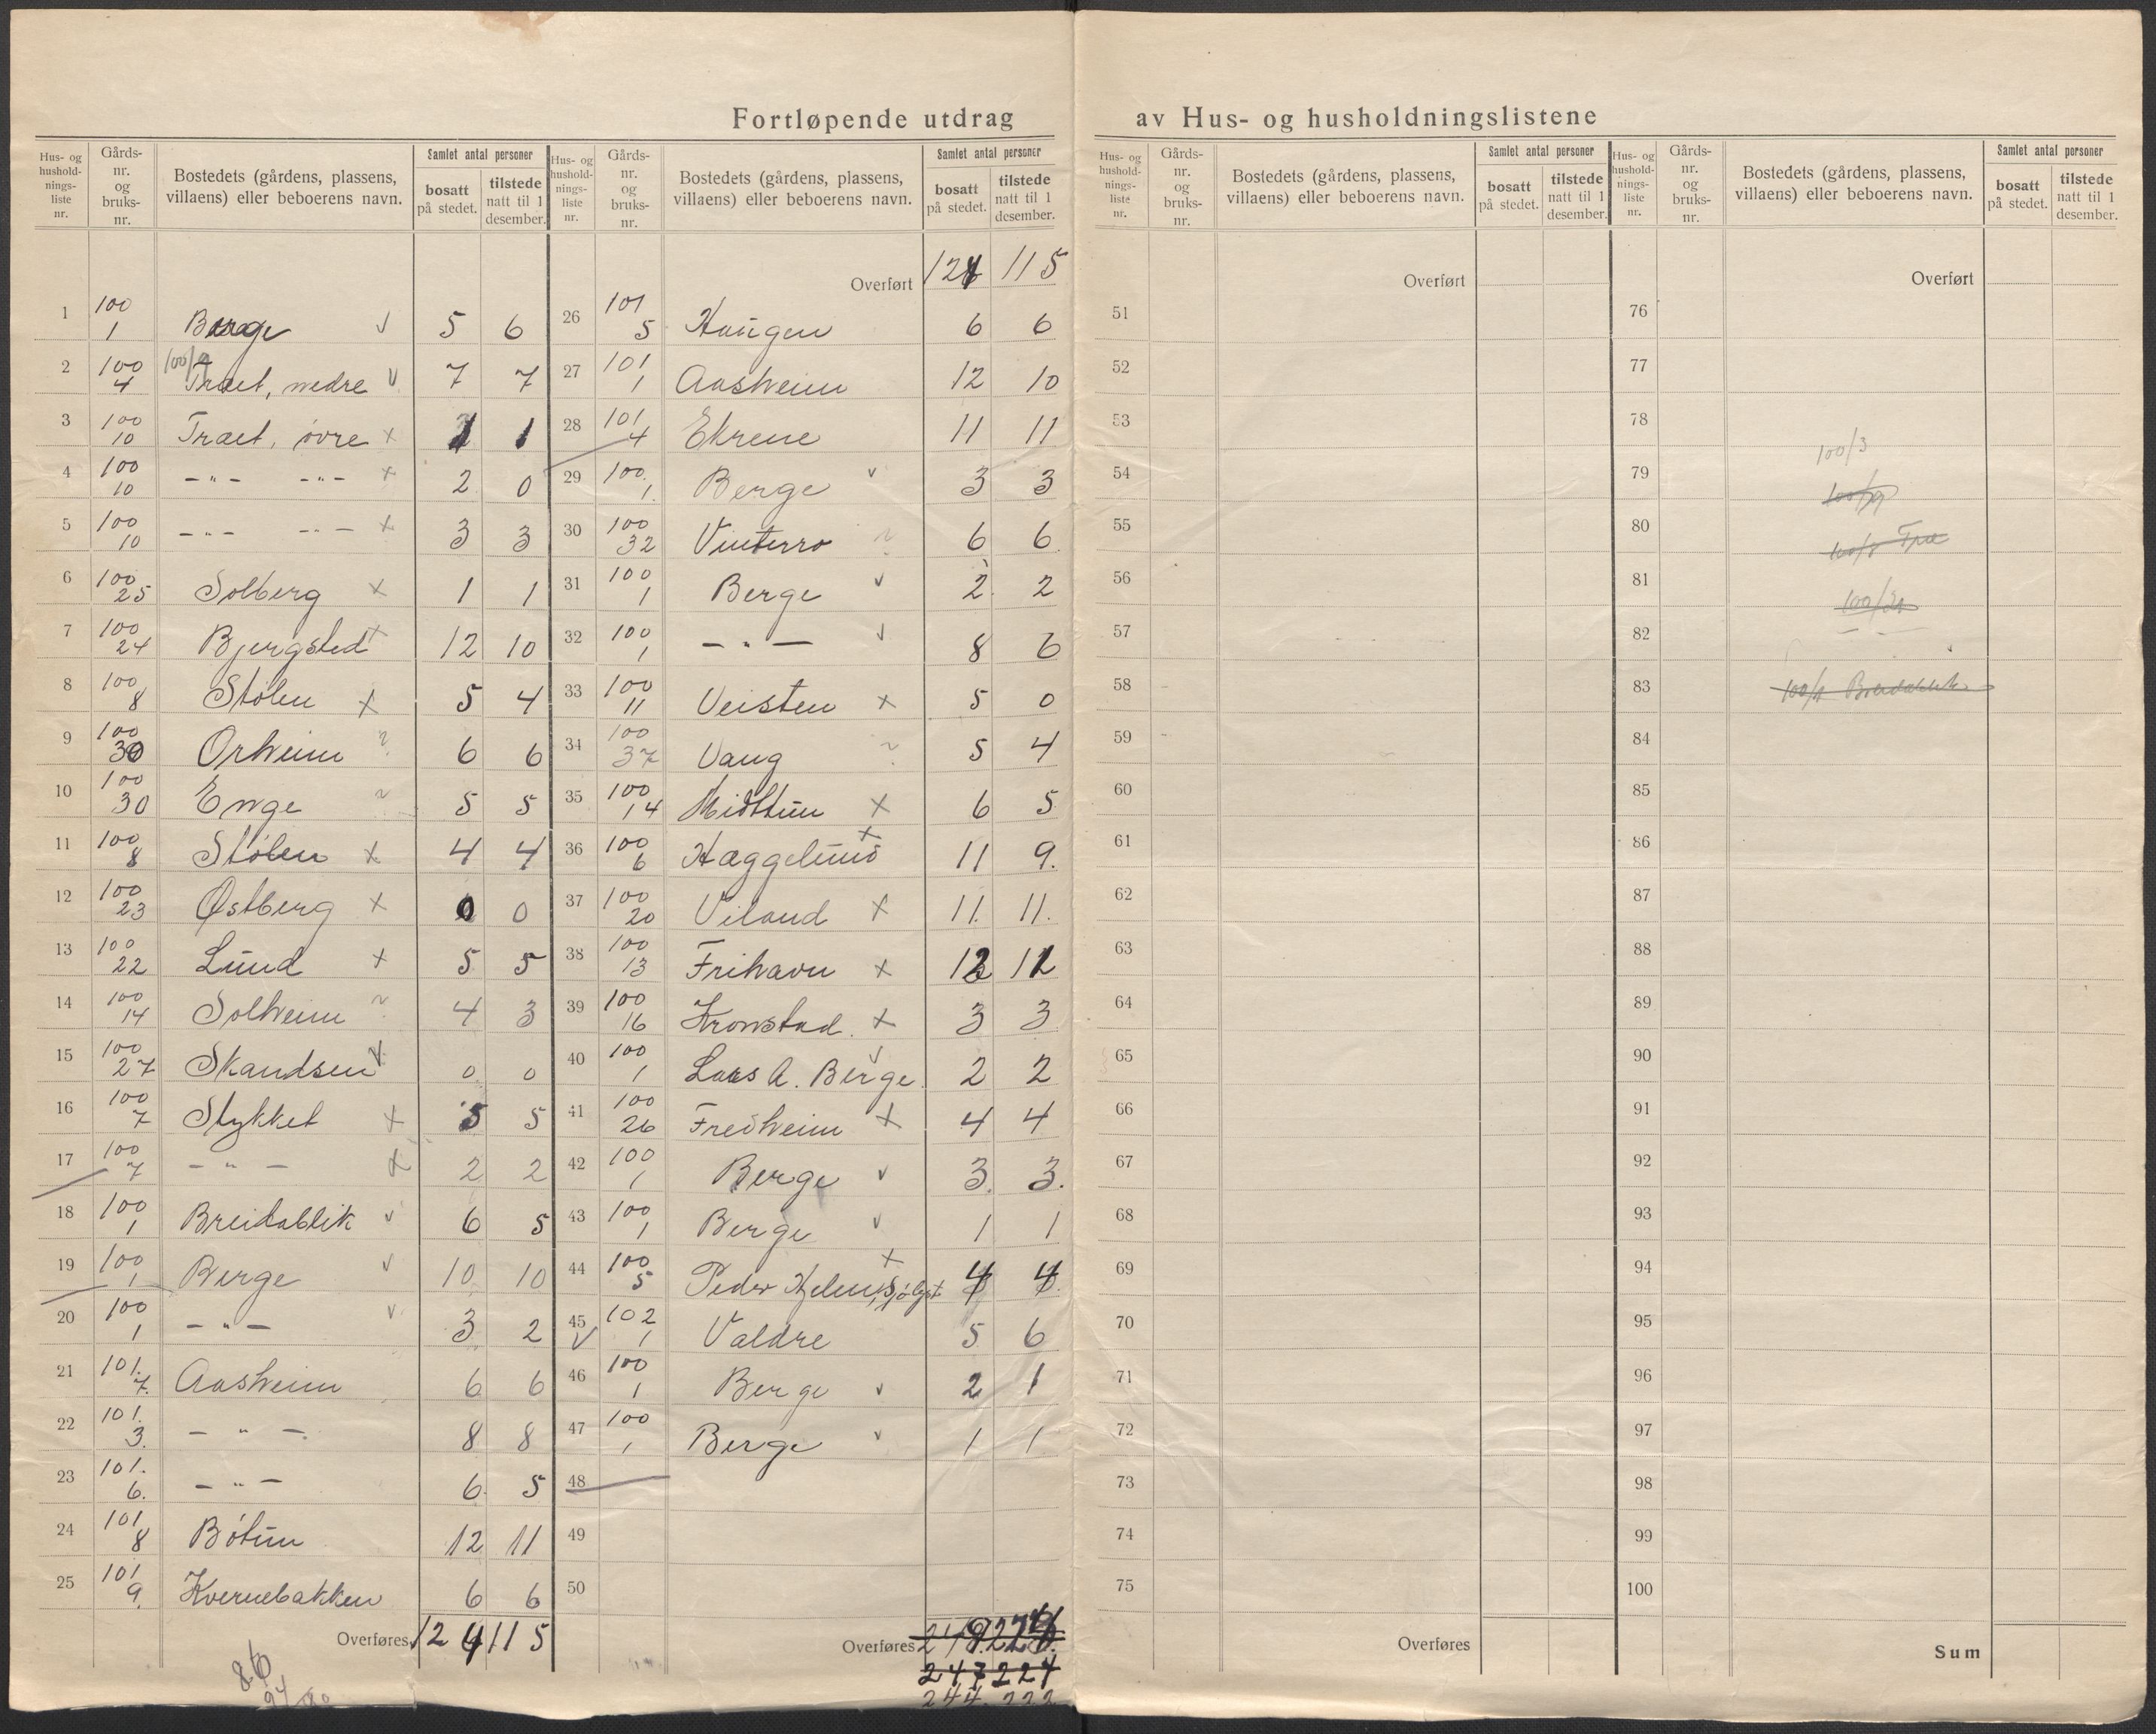 Fortløpende utdrag av Hus- og husholdningslistene
Hus- og husholdnings-liste nr. | Gårds-nr. og bruks-nr. | Bostedets (gårdens, plassens, villaens) eller beboerens navn. | Samlet antal personer bosatt på stedet. | tilstede natt til 1 desember.
1 | 100 1 | Berge v | 5 | 6
2 | 100 4 | 100/9 Træet, nedre v | 7 | 7
3 | 100 10 | Træet, øvre x | 1 | 1
4 | 100 10 | -"- -"- x | 2 | 0
5 | 100 10 | -"- -"- x | 3 | 3
6 | 100 25 | Solberg x | 1 | 1
7 | 100 24 | Bjergsted x | 12 | 10
8 | 100 8 | Stølen x | 5 | 4
9 | 100 30 | Orheim | 6 | 6
10 | 100 30 | Enge | 5 | 5
11 | 100 8 | Stølen x | 4 | 4
12 | 100 23 | Østberg x | 0 | 0
13 | 100 22 | Lund x | 5 | 5
14 | 100 14 | Solheim | 4 | 3
15 | 100 27 | Skandsen v | 0 | 0
16 | 100 7 | Stykket x | 5 | 5
17 | 100 7 | - " - x | 2 | 2
18 | 100 1 | Breidablik v | 6 | 5
19 | 100 1 | Berge v | 10 | 10
20 | 100 1 | - " - v | 3 | 2
21 | 101. 7. | Aasheim | 6 | 6
22 | 101. 3. | - " - | 8 | 8
23 | 101. 6. | - " - | 6 | 5
24 | 101 8 | Bøtun | 12 | 11
25 | 101 9. | Kvernebakken | 6 | 6
Overføres 124 115
86
94 80
Hus- og husholdnings-liste nr. | Gårds-nr. og bruks-nr. | Bostedets (gårdens, plassens, villaens) eller beboerens navn. | Samlet antal personer bosatt på stedet. | tilstede natt til 1 desember.
Overført 124 115
26 | 101 5 | Haugen | 6 | 6
27 | 101 1 | Aasheim | 12 | 10
28 | 101 4 | Ekrene | 11 | 11
29 | 100. 1. | Berge v | 3 | 3
30 | 100 32 | Vinterro | 6 | 6
31 | 100 1 | Berge v | 2 | 2
32 | 100 1 | - " - v | 8 | 6
33 | 100 11 | Veisten x | 5 | 0
34 | 100 37 | Vang | 5 | 4
35 | 100 14 | Midttun x | 6 | 5
36 | 100 6 | Hæggelund x | 11 | 9.
37 | 100 20 | Viland x | 11. | 11.
38 | 100 13 | Frihavn x | 12 | 12
39 | 100 16 | Kronstad. x | 3 | 3
40 | 100 1 | Lars A. Berge. v | 2 | 2
41 | 100 26 | Fredheim x | 4 | 4
42 | 100 1 | Berge v | 3. | 3.
43 | 100 1 | Berge v | 1 | 1
44 | 100 5 | Peder x | 4 | 4
45 v | 102 1 | Valdre | 5 | 6
46 | 100 1 | Berge v | 2 | 1
47 | 100 1 | Berge v | 1 | 1
48
49
50
Overføres
247 224
244. 222
Hus- og husholdnings-liste nr. | Gårds-nr. og bruks-nr. | Bostedets (gårdens, plassens, villaens) eller beboerens navn. | Samlet antal personer bosatt på stedet. | tilstede natt til 1 desember.
Overført
51
52
53
54
55
56
57
58
59
60
61
62
63
64
65
66
67
68
69
70
71
72
73
74
75
Overføres
Hus- og husholdnings-liste nr. | Gårds-nr. og bruks-nr. | Bostedets (gårdens, plassens, villaens) eller beboerens navn. | Samlet antal personer bosatt på stedet. | tilstede natt til 1 desember.
Overført
76
77
78
100/3
79
80
81
82
83 | Breidablik
84
85
86
87
88
89
90
91
92
93
94
95
96
97
98
99
100
Sum